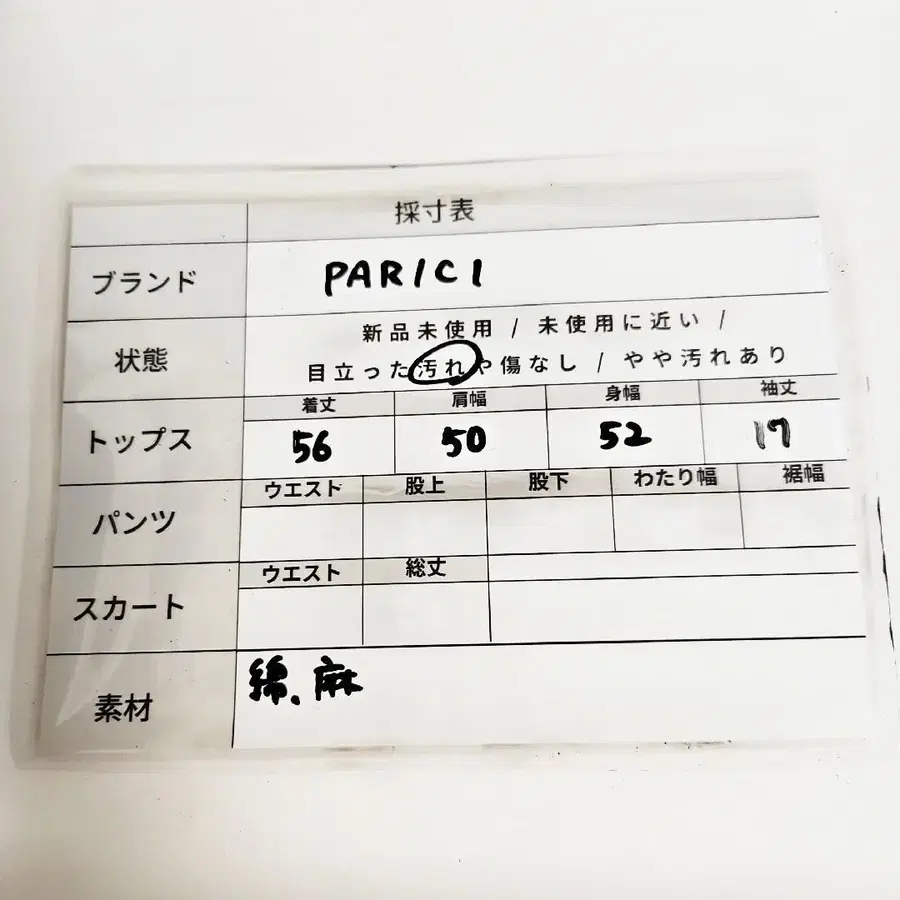 採寸表
ブランド PARICI
状態 新品未使用 / 未使用に近い /
目立った汚れや傷なし / やや汚れあり
着丈 肩幅 身幅 袖丈
トップス 56 50 52 17
ウエスト 股上 股下 わたり幅 裾幅
パンツ
ウエスト 総丈
スカート
素材 綿、麻